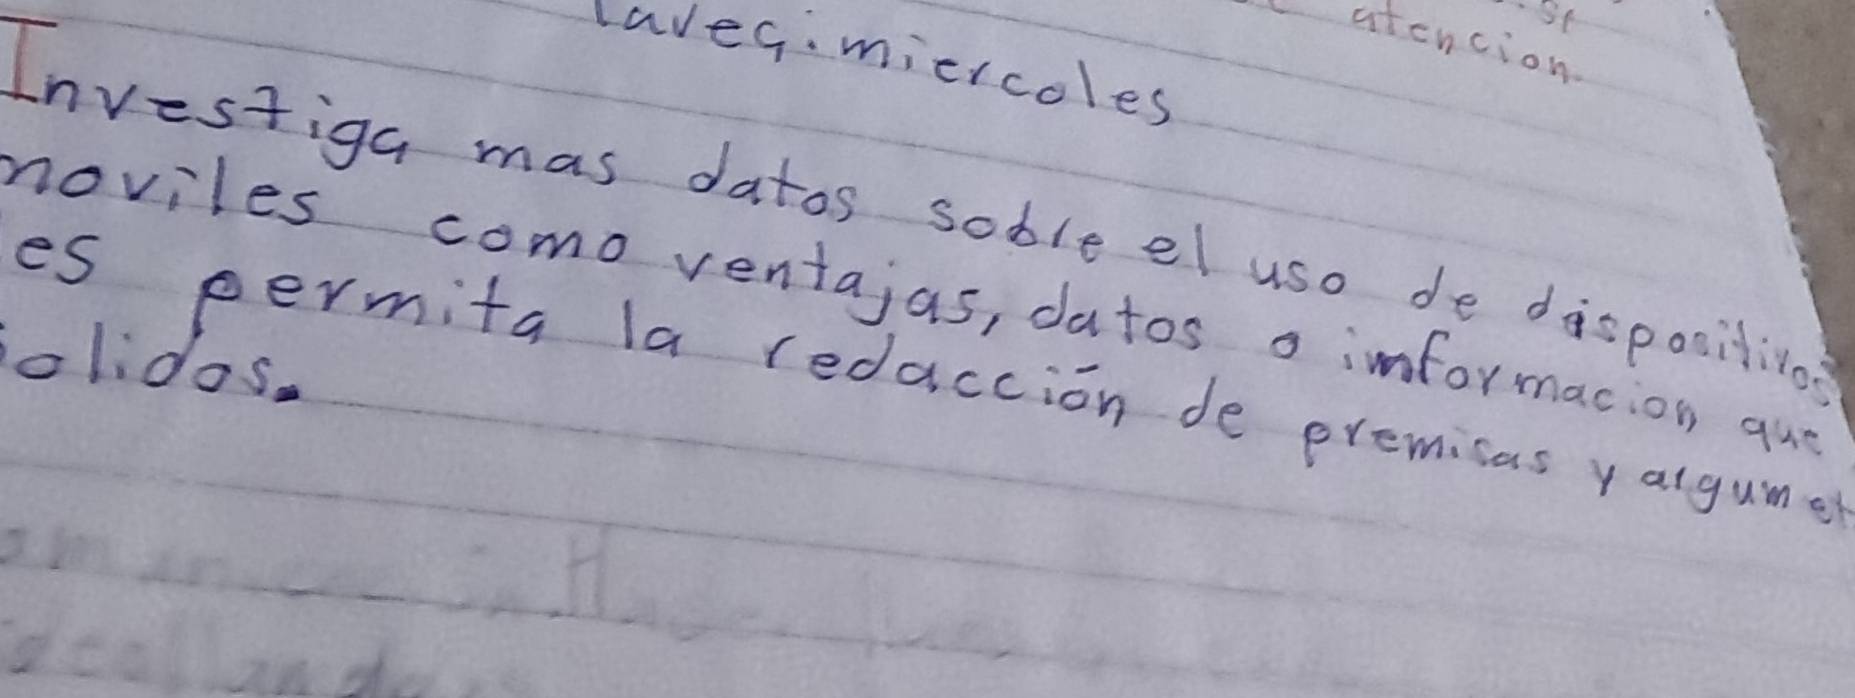 atencion.
miercoles
Investiga mas datos sobre el uso de dispositivos
moviles como ventajas, datos o imformacion que
es permita la redacción de premisas y argumen
solidos.